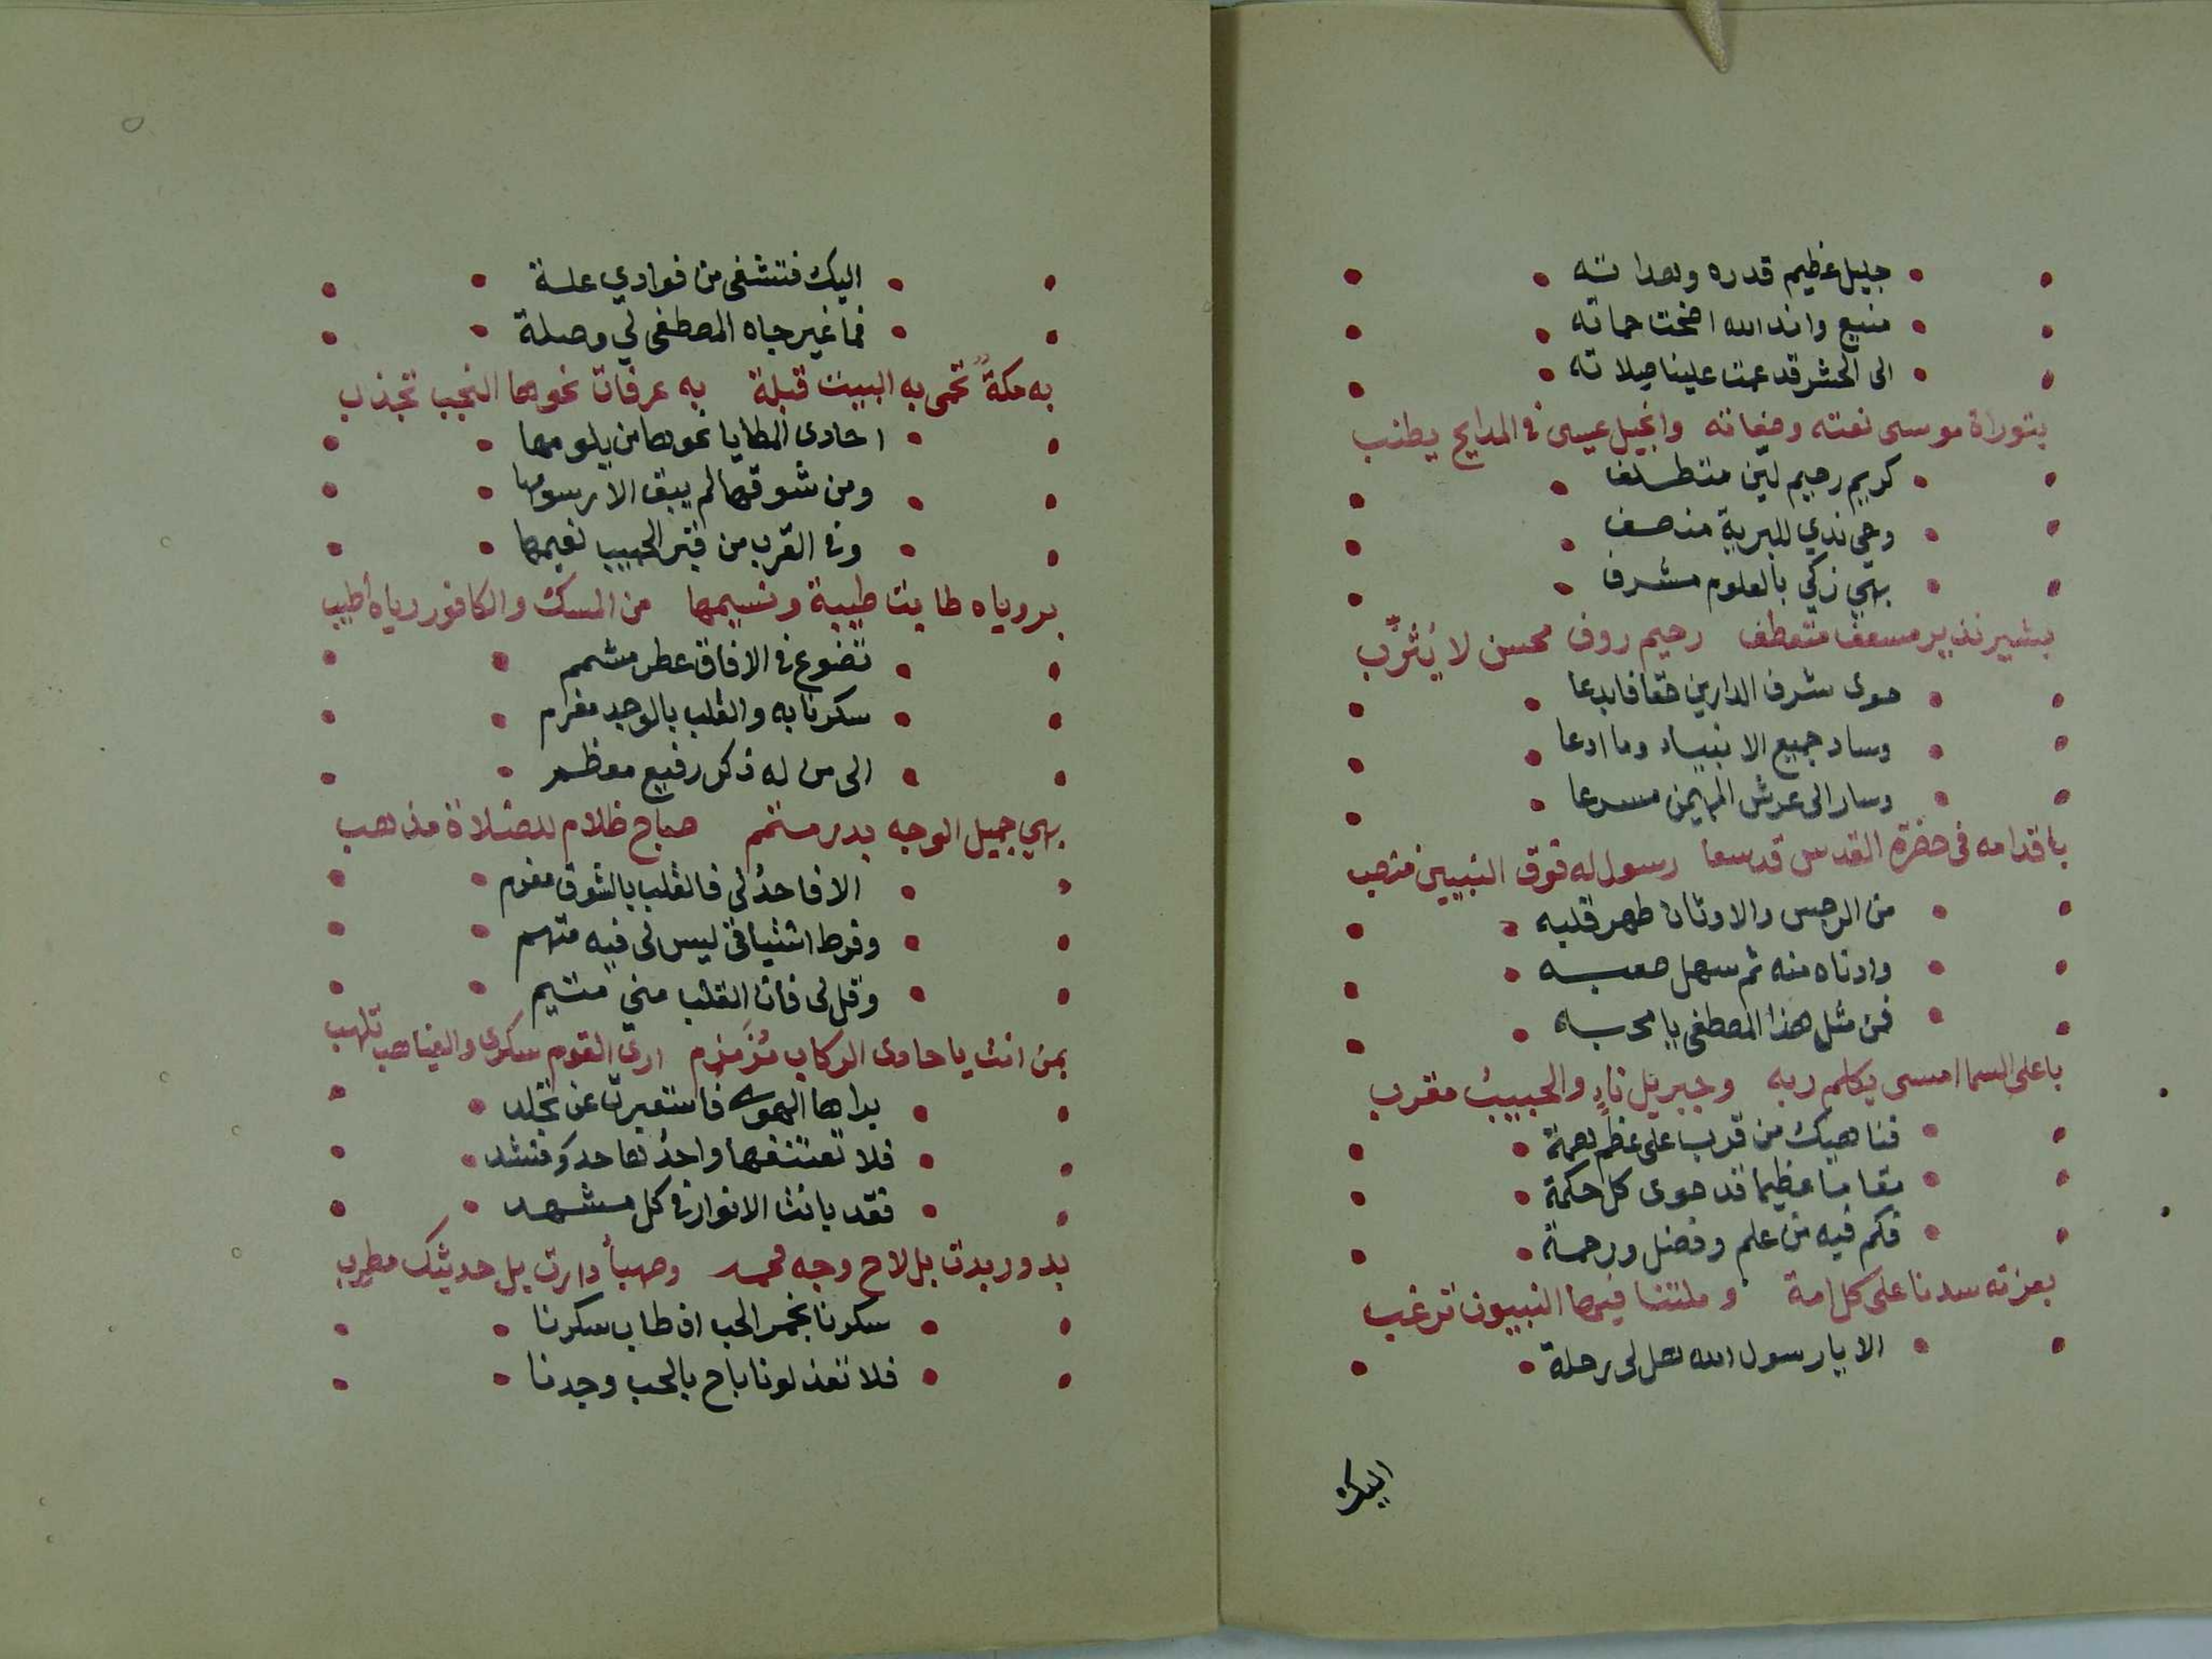 جليل عظيم قدره وهداته
منيع واند الله اضحت حماته
الى الحشر قد عمت علينا صلاته
بتوراة موسى نعته وصفاته وانجيل عيسى في المدايح يطنب
كريم رحيم لين متطلف
وحي ندي للبرية منصف
بهي زكي بالعلوم مشرف
بشير نذير مسعف متعطف رحيم روف محسن لا يُثرِّب
حوى شرف الدارين حقا فابدعا
وساد جميع الانبياء وما ادعا
وسار الى عرش المهيمن مسرعا
باقدامه في حضرة القدس قد سعا رسول له فوق النبيين منصب
من الرجس والاوثان طهر قلبه
وادناه منه ثم سهل صعبه
فمن مثل هذا المصطفى يا محبه
باعلى السما امسى يكلم ربه وجبريل ناءٍ والحبيبُ مقرب
فناهيك من قرب على عظم همة
مقاما عظيما قد حوى كل حكمة
فكم فيه من علم وفضل ورحمة
بعزته سدنا على كل امة وملتنا فيها النبيون ترغب
الا يا رسول الله هل لى رحلة
اليك
اليك فتشفى من فوادي علة
فما غير جاه المصطفى لي وصلة
به مكةً تحمى به البيت قبلة به عرفات نحوها النجب تجذب
احادى المطايا نحوها من يلومها
ومن شوقها لم يبق الا رسومها
وفي القرب من قبر الحبيب نعيمها
برياه طابت طيبة ونسيمها من المسك والكافور رياه أطيب
تضوع في الافاق عطر مشمم
سكرنا به والقلب بالوجد مغرم
الى من له ذكر رفيع معظم
بهي جميل الوجه بدر متمم صباح ظلام للضلالة مذهب
الا فاحدُ لي فالقلب بالشوق مغرم
وفرط اشتياقي ليس لى فيه متهم
وقل لى فان القلب مني متيم
بمن انت يا حادى الركاب مُزَمزم ارى القوم سكرى والغياهب تلهب
بداها الهوى فاستعبرت عن تجلد
فلا تعنفها واحدُ يا حد وَمنشد
فقد بانت الانوار في كل مشهد
بدور بدت بل لاح وجه محمد وصهبأ دارت بل حديثك مطرب
سكرنا بخمر الحب اذ طاب سكرنا
فلا تعذلونا باح بالحب وجدنا